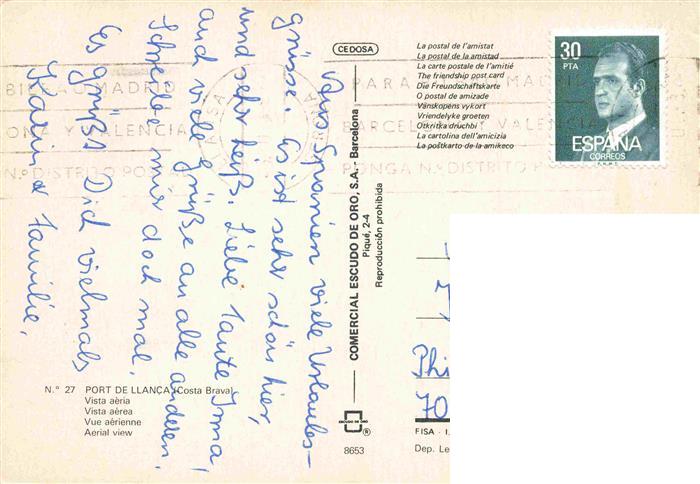 Aus Spanien viele Urlaubs-
grüsse. Es ist sehr schön hier,
und sehr heiß. Liebe Tante Irma,
und viele Grüße an alle anderen.
Schreibe mir doch mal.
Es grüßt Dich vielmals
Karin & Familie.
CEDOSA
La postal de l'amistat
La postal de la amistad
La carte postale de l'amitié
The friendship post card
Die Freundschaftskarte
O postal de amizade
Vänskapens vykort
Vriendelyke groeten
Otkritka druchbi
La cartolina dell'amicizia
La poŝtkarto de la amikeco
30
PTA
ESPAÑA
CORREOS
F.N.M.T.
BILBAO MADRID
ONA Y VALENCIA
N.º DISTRITO POSTAL
PARA MADRID
BARCELONA Y VALENCIA
PONGA N.º DISTRITO PO
COMERCIAL ESCUDO DE ORO, S.A. - Barcelona
Piqué, 2-4
Reproducción prohibida
Phi
70
N.º 27 PORT DE LLANÇA (Costa Brava)
Vista aèria
Vista aérea
Vue aérienne
Aerial view
ESCUDO DE ORO
®
8653
FISA - I.
Dep. Le